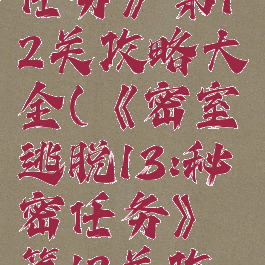 任务》第1
2关攻略大
全(《密室
逃脱13:秘
密任务》
第12关攻